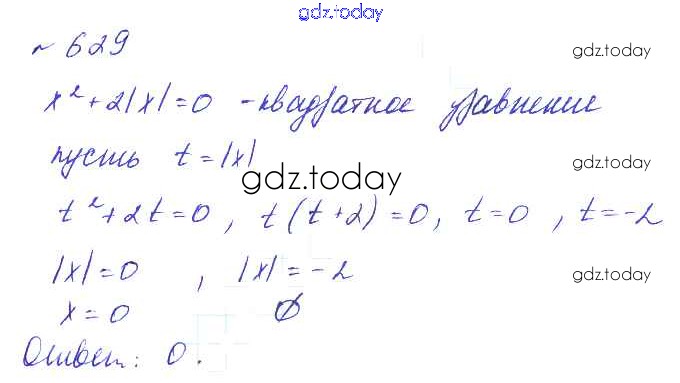 gdz.today
№ 629
gdz.today
x² + 2|x| = 0 - квадратное уравнение
пусть t = |x|
gdz.today
gdz.today
t² + 2t = 0, t(t+2) = 0, t = 0, t = -2
|x| = 0, |x| = -2
gdz.today
x = 0 ∅
Ответ: 0.